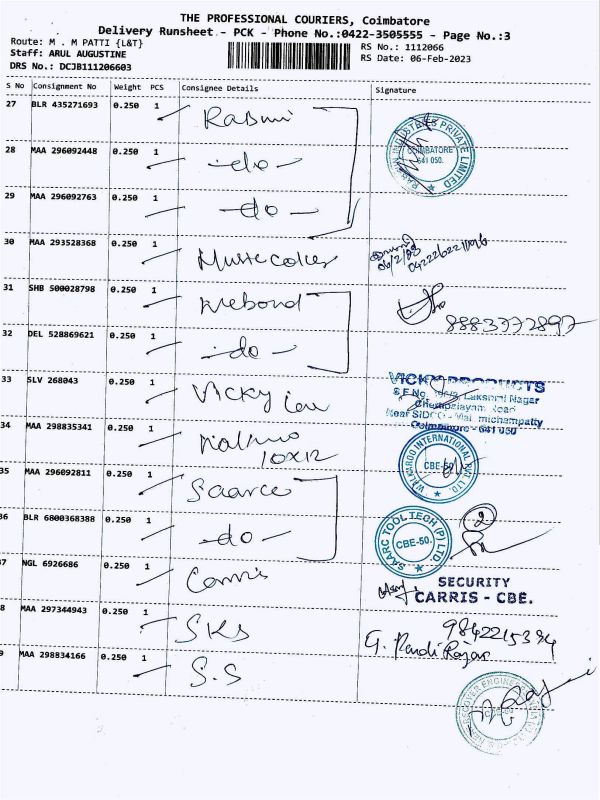 THE PROFESSIONAL COURIERS, Coimbatore
Delivery Runsheet - PCK - Phone No.:0422-3505555 - Page No.:3
Route: M . M PATTI {L&T}
Staff: ARUL AUGUSTINE
DRS No.: DCJB111206603
RS No.: 1112066
RS Date: 06-Feb-2023
S No Consignment No Weight PCS Consignee Details Signature
27 BLR 435271693 0.250 1
28 MAA 296092448 0.250 1 -do-
COIMBATORE
641 050.
29 MAA 296092763 0.250 1 -do-
30 MAA 293528368 0.250 1
06/2/23
31 SHB 500028798 0.250 1 Webond
8883372897
32 DEL 528869621 0.250 1 -do-
33 SLV 268043 0.250 1 Vicky
VICKY PRODUCTS
Lakshmi Nagar
Road
Near SIDCO
Coimbatore - 641 050
34 MAA 298835341 0.250 1
10x12
WALKAROO INTERNATIONAL PVT. LTD
CBE-50
35 MAA 296092811 0.250 1 Saarc
36 BLR 6800368388 0.250 1 -do-
SAARC TOOL TECH (P) LTD.
CBE-50.
2
7 NGL 6926686 0.250 1 Carris
SECURITY
CARRIS - CBE.
8 MAA 297344943 0.250 1 SKS
9842215394
G. Pandi Rajan
9 MAA 298834166 0.250 1 S.S